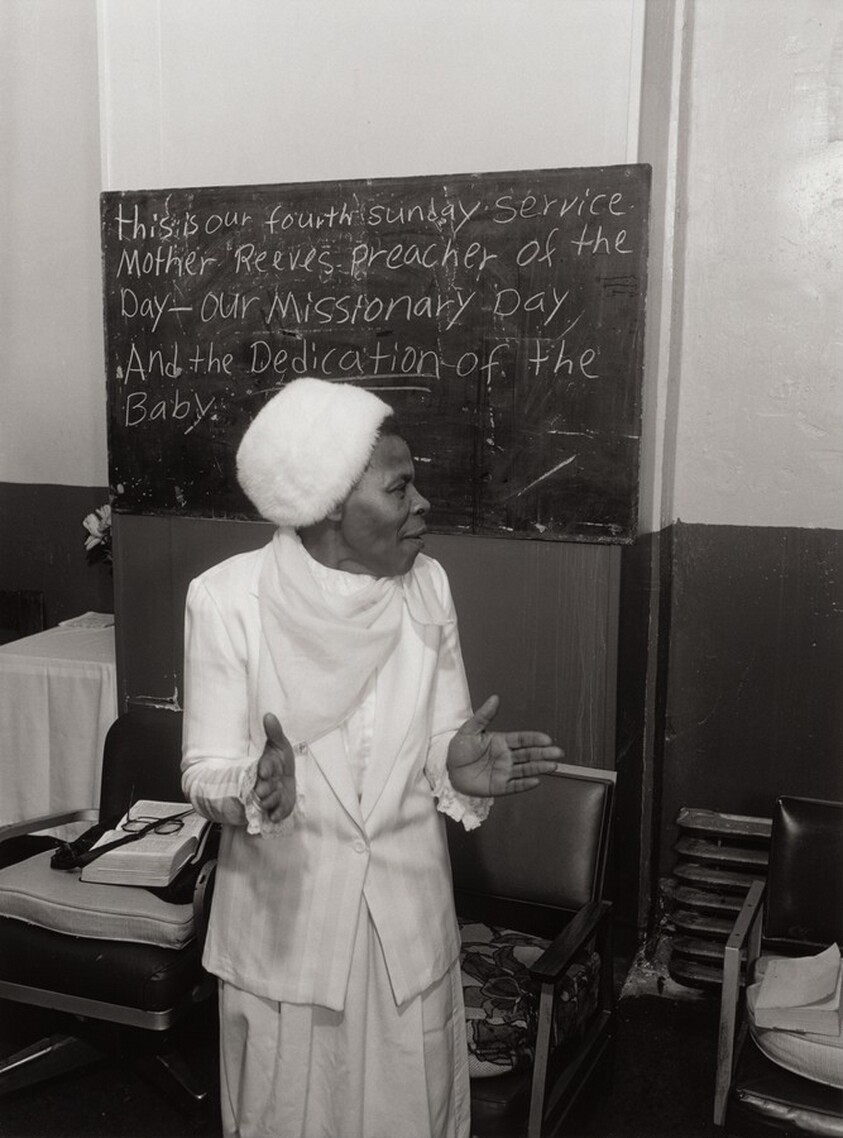 this is our fourth sunday service
Mother Reeves preacher of the
Day— our Missionary Day
And the Dedication of the
Baby